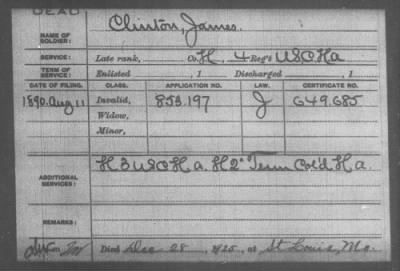 DEAD
NAME OF SOLDIER: Clinton, James.
SERVICE: Late rank, Co. H, 4 Reg't U S C H a
TERM OF SERVICE: Enlisted , 1 Discharged , 1
DATE OF FILING. CLASS. APPLICATION NO. LAW. CERTIFICATE NO.
1890. Aug 11 Invalid, 853.197 J 649.685
Widow,
Minor,
ADDITIONAL SERVICES: H 3 U S C H a. H 2" Tenn Col'd H a.
REMARKS:
Died Dec 28, 1925, at St Louis, Mo.